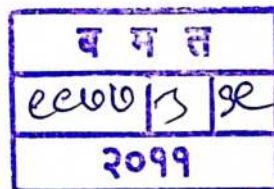 ब म त
९९७७ ३ १९
२०११